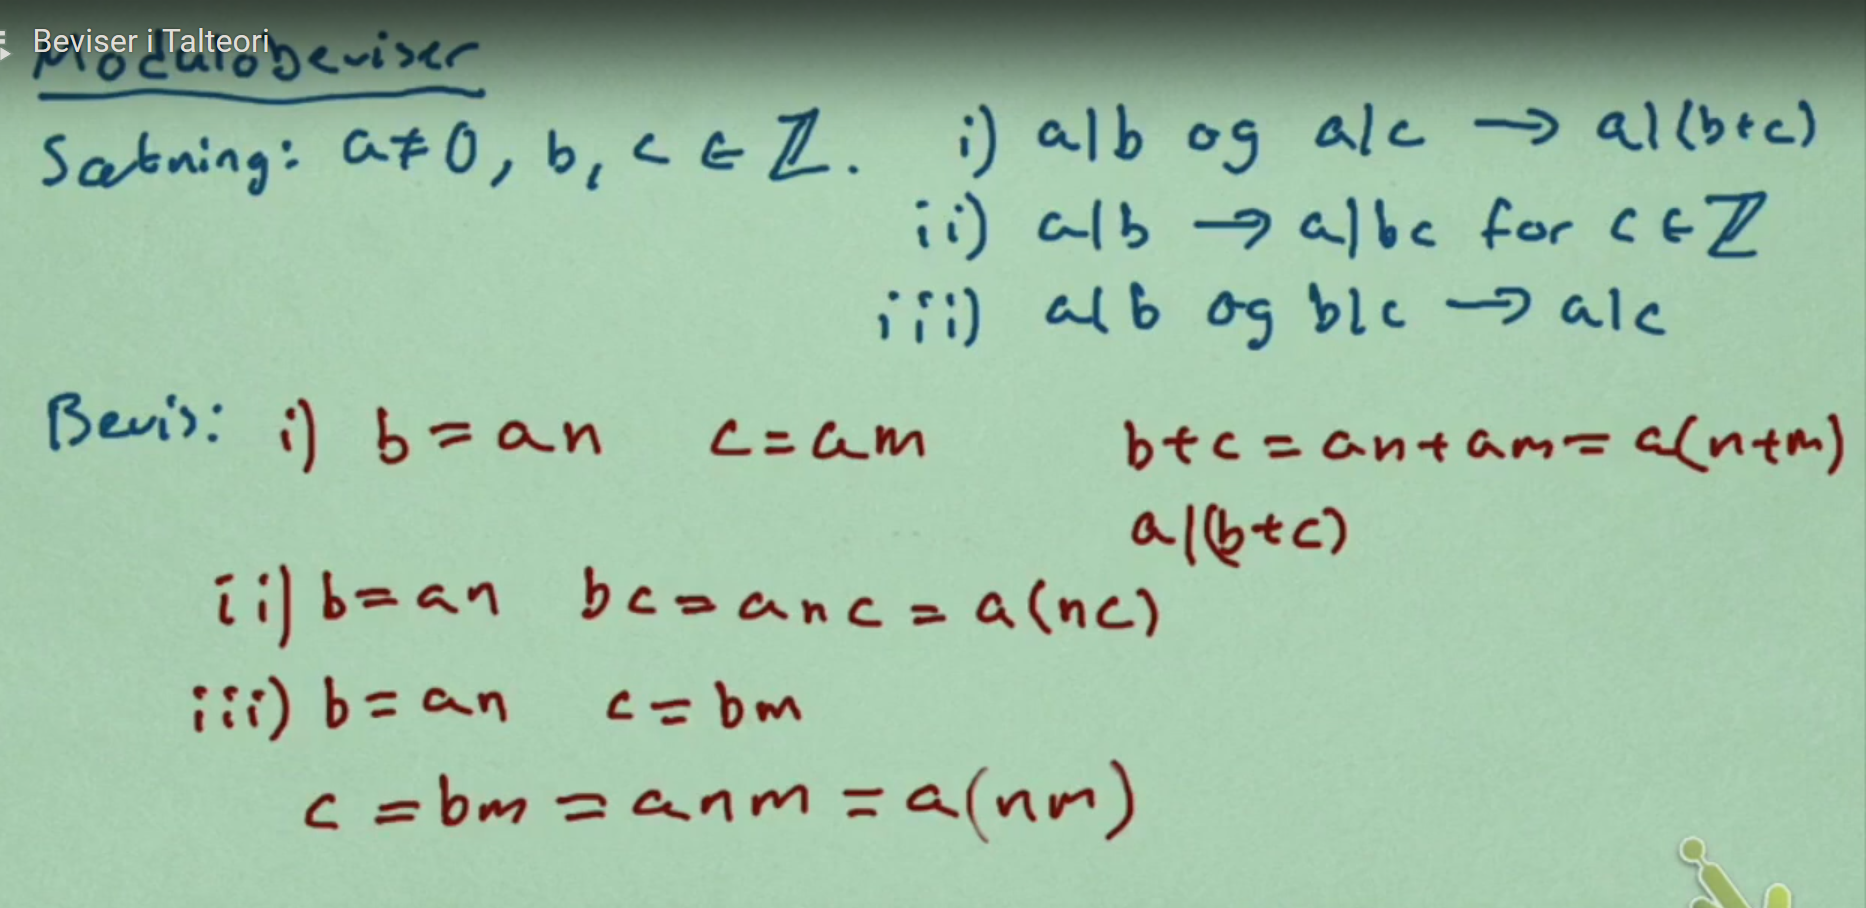 Beviser i Talteori
Modulobeviser
Sætning: a≠0, b, c ∈ ℤ. i) a|b og a|c → a|(b+c)
ii) a|b → a|bc for c ∈ ℤ
iii) a|b og b|c → a|c
Bevis: i) b = an c = am b+c = an+am = a(n+m)
a|(b+c)
ii) b = an bc = anc = a(nc)
iii) b = an c = bm
c = bm = anm = a(nm)